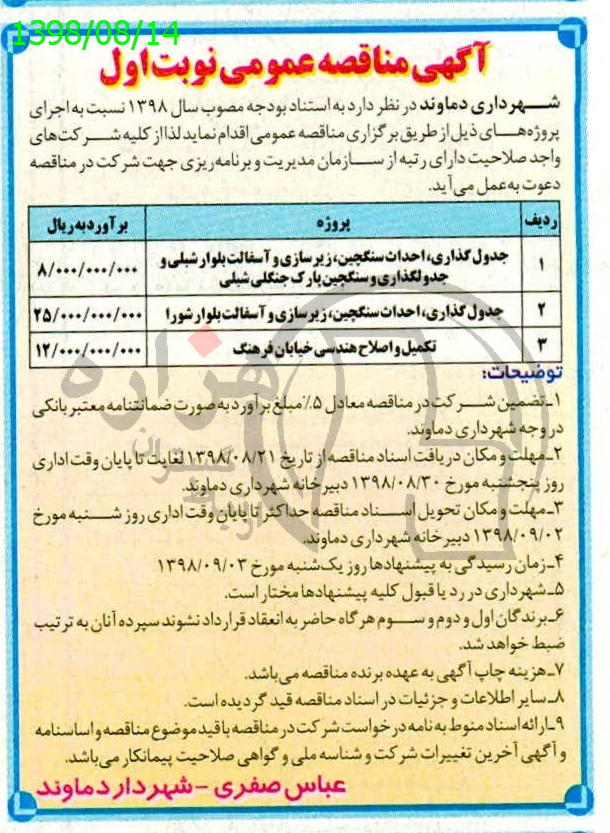 1398/08/14
آگهی مناقصه عمومی نوبت اول
شهرداری دماوند در نظر دارد به استناد بودجه مصوب سال ۱۳۹۸ نسبت به اجرای
پروژه‌های ذیل از طریق برگزاری مناقصه عمومی اقدام نماید لذا از کلیه شرکت‌های
واجد صلاحیت دارای رتبه از سازمان مدیریت و برنامه‌ریزی جهت شرکت در مناقصه
دعوت به عمل می‌آید.
ردیف پروژه برآورد به ریال
۱ جدول گذاری، احداث سنگچین، زیرسازی و آسفالت بلوار شبلی و ۸/۰۰۰/۰۰۰/۰۰۰
جدولگذاری و سنگچین پارک جنگلی شبلی
۲ جدول گذاری، احداث سنگچین، زیرسازی و آسفالت بلوار شورا ۲۵/۰۰۰/۰۰۰/۰۰۰
۳ تکمیل و اصلاح هندسی خیابان فرهنگ ۱۲/۰۰۰/۰۰۰/۰۰۰
توضیحات:
۱ـ تضمین شرکت در مناقصه معادل ۵٪ مبلغ برآورد به صورت ضمانتنامه معتبر بانکی
در وجه شهرداری دماوند.
۲ـ مهلت و مکان دریافت اسناد مناقصه از تاریخ ۱۳۹۸/۰۸/۲۱ لغایت تا پایان وقت اداری
روز پنجشنبه مورخ ۱۳۹۸/۰۸/۳۰ دبیرخانه شهرداری دماوند.
۳ـ مهلت و مکان تحویل اسناد مناقصه حداکثر تا پایان وقت اداری روز شنبه مورخ
۱۳۹۸/۰۹/۰۲ دبیرخانه شهرداری دماوند.
۴ـ زمان رسیدگی به پیشنهادها روز یک‌شنبه مورخ ۱۳۹۸/۰۹/۰۳
۵ـ شهرداری در رد یا قبول کلیه پیشنهادها مختار است.
۶ـ برندگان اول و دوم و سوم هرگاه حاضر به انعقاد قرارداد نشوند سپرده آنان به ترتیب
ضبط خواهد شد.
۷ـ هزینه چاپ آگهی به عهده برنده مناقصه می‌باشد.
۸ـ سایر اطلاعات و جزئیات در اسناد مناقصه قید گردیده است.
۹ـ ارائه اسناد منوط به نامه درخواست شرکت در مناقصه با قید موضوع مناقصه و اساسنامه
و آگهی آخرین تغییرات شرکت و شناسه ملی و گواهی صلاحیت پیمانکار می‌باشد.
عباس صفری - شهردار دماوند
هزاره